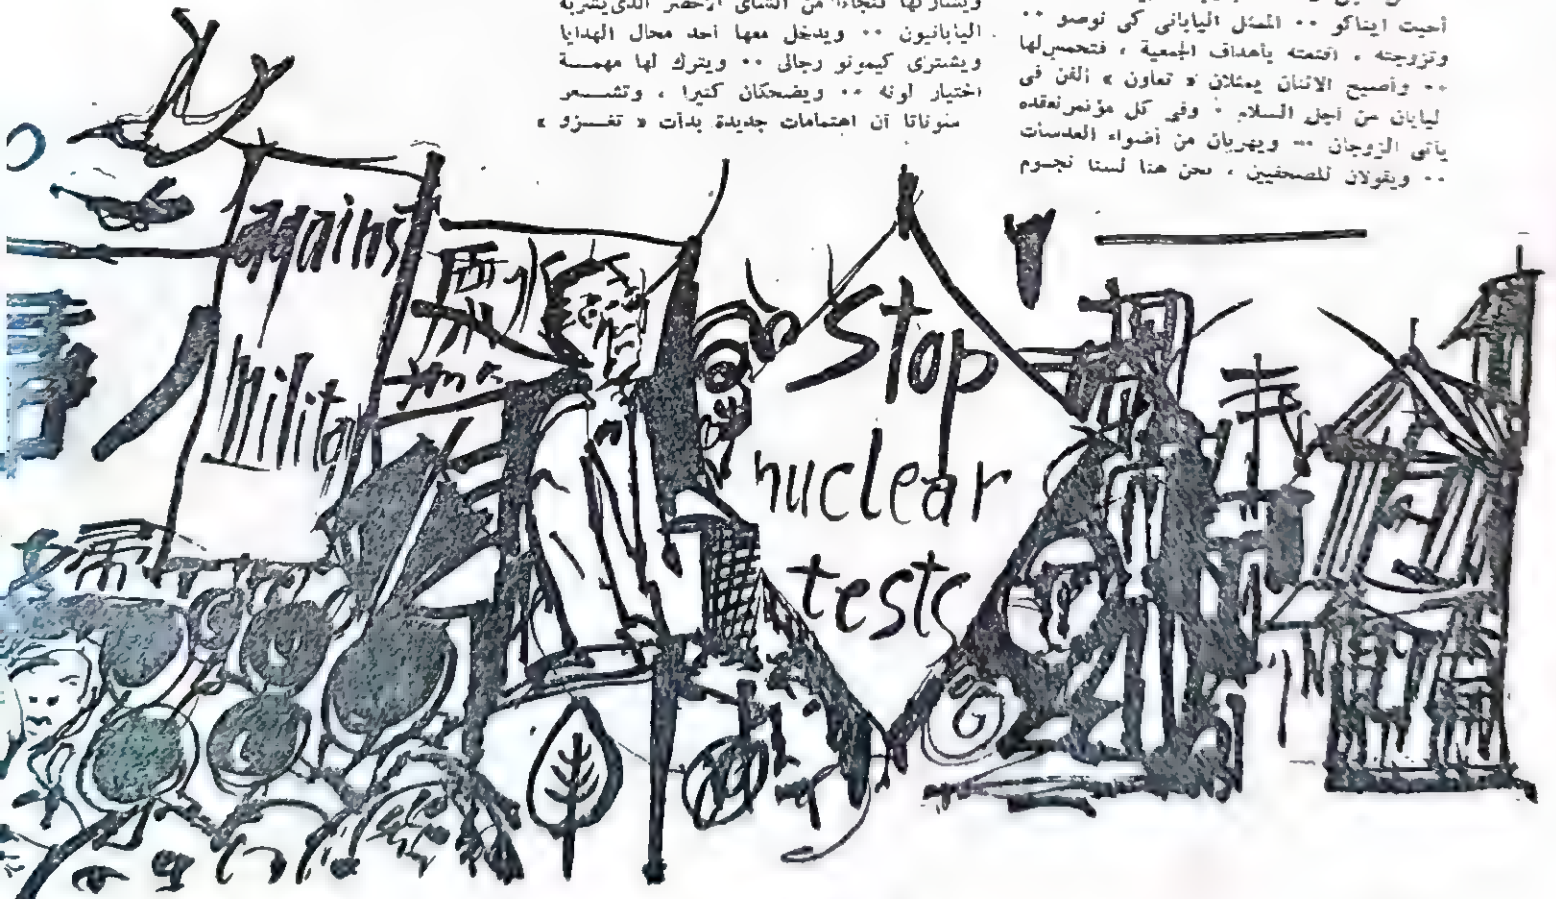 أحبت ايناكو •• الممثل اليابانى كى نوصو ••
وتزوجته ، اقنعته بأهداف الجمعية ، فتحمس لها
•• وأصبح الاثنان يمثلان « تعاون » الفن فى
ليابان من أجل السلام • وفى كل مؤتمر تعقده
يأتى الزوجان •• ويهربان من أضواء العدسات
•• ويقولان للصحفيين ، نحن هنا لسنا نجوم
ويشاركها فنجانا من الشاى الأخضر الذى يشربه
اليابانيون •• ويدخل معها أحد محال الهدايا
ويشترى كيمونو رجالى •• ويترك لها مهمة
اختيار لونه •• ويضحكان كثيرا ، وتشعر
سوناتا أن اهتمامات جديدة بدأت « تغزو »
against
milita
Stop
nuclear
tests